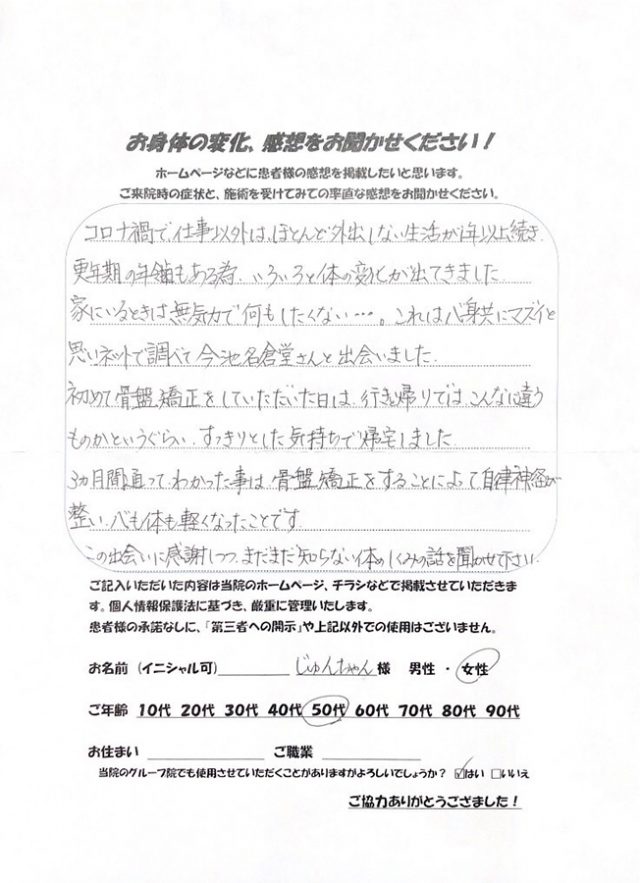 お身体の変化、感想をお聞かせください！
ホームページなどに患者様の感想を掲載したいと思います。
ご来院時の症状と、施術を受けてみての率直な感想をお聞かせください。
コロナ禍で、仕事以外は、ほとんど外出しない生活が1年以上続き、
更年期の年齢もある為、いろいろと体の変化が出てきました。
家にいるときは無気力で何もしたくない…。これは心身共にマズイと
思いネットで調べて今池名倉堂さんと出会いました。
初めて骨盤矯正をしていただいた日は、行きと帰りでは、こんなに違う
ものかというぐらい、すっきりとした気持ちで帰宅しました。
3ヵ月間通って、わかった事は、骨盤矯正をすることによって自律神経が
整い、心も体も軽くなったことです。
この出会いに感謝しつつ、まだまだ知らない体のしくみの話を聞かせて下さい。
ご記入いただいた内容は当院のホームページ、チラシなどで掲載させていただきま
す。個人情報保護法に基づき、厳重に管理いたします。
患者様の承諾なしに、「第三者への開示」や上記以外での使用はございません。
お名前（イニシャル可） じゅんちゃん 様 男性 ・ 女性
ご年齢 10代 20代 30代 40代 50代 60代 70代 80代 90代
お住まい ご職業
当院のグループ院でも使用させていただくことがありますがよろしいでしょうか？ ☑はい □いいえ
ご協力ありがとうござました！